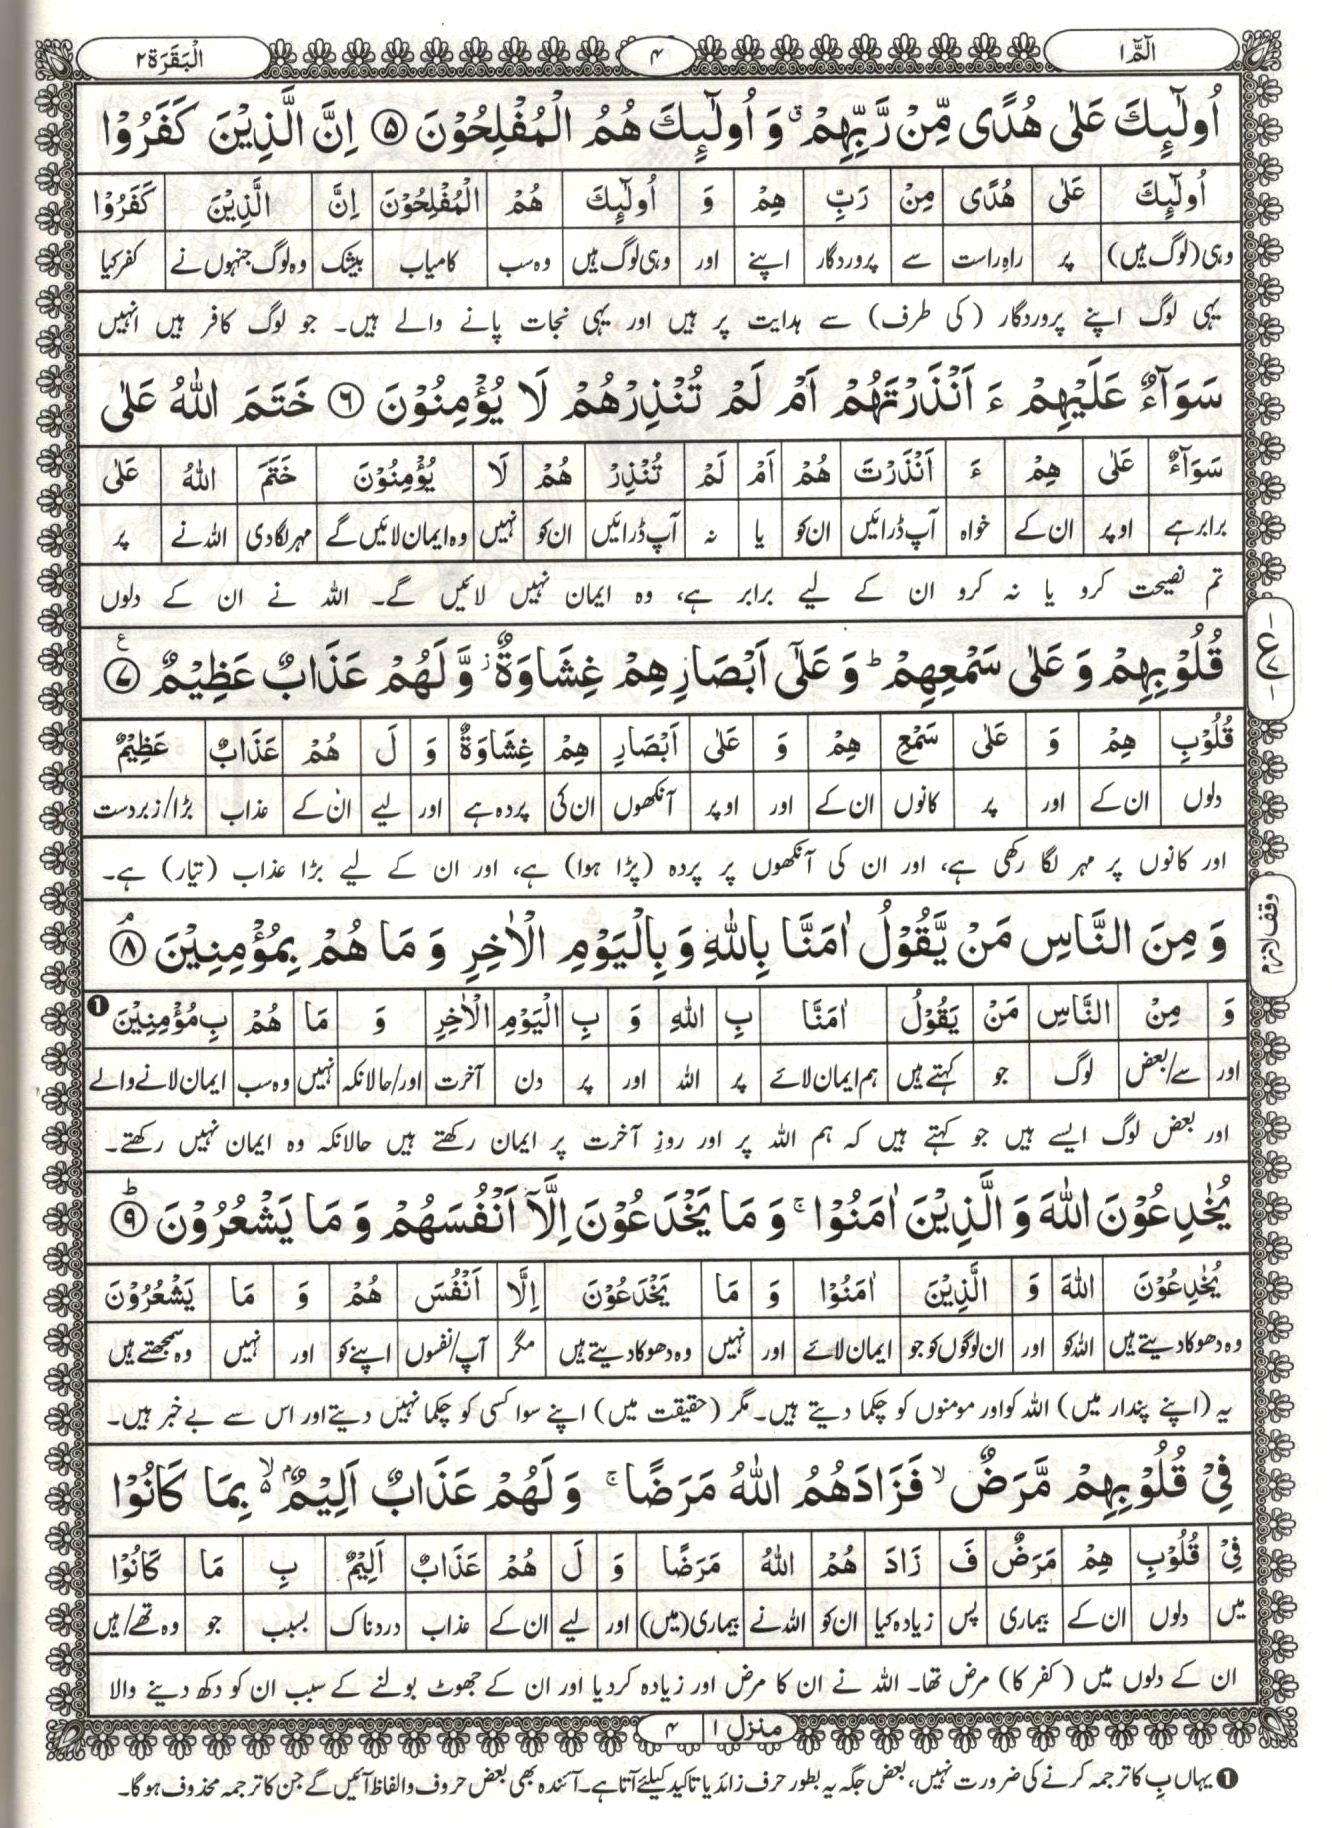 الٓمّٓ ١ ۴ الْبَقَرَة ٢
اُولٰٓئِكَ عَلٰى هُدًى مِّنْ رَّبِّهِمْ ۗ وَ اُولٰٓئِكَ هُمُ الْمُفْلِحُوْنَ ۵ اِنَّ الَّذِيْنَ كَفَرُوْا
اُولٰٓئِكَ عَلٰى هُدًى مِنْ رَبِّ هِمْ وَ اُولٰٓئِكَ هُمْ الْمُفْلِحُوْنَ اِنَّ الَّذِيْنَ كَفَرُوْا
وہی (لوگ ہیں) پر راہِ راست سے پروردگار اپنے اور وہی لوگ ہیں وہ سب کامیاب بیشک وہ لوگ جنہوں نے کفر کیا
یہی لوگ اپنے پروردگار (کی طرف) سے ہدایت پر ہیں اور یہی نجات پانے والے ہیں۔ جو لوگ کافر ہیں انہیں
سَوَآءٌ عَلَيْهِمْ ءَ اَنْذَرْتَهُمْ اَمْ لَمْ تُنْذِرْهُمْ لَا يُؤْمِنُوْنَ ۶ خَتَمَ اللّٰهُ عَلٰى
سَوَآءٌ عَلٰى هِمْ ءَ اَنْذَرْتَ هُمْ اَمْ لَمْ تُنْذِرْ هُمْ لَا يُؤْمِنُوْنَ خَتَمَ اللّٰهُ عَلٰى
برابر ہے اوپر ان کے خواہ آپ ڈرائیں ان کو یا نہ آپ ڈرائیں ان کو نہیں وہ ایمان لائیں گے مہر لگادی اللہ نے پر
تم نصیحت کرو یا نہ کرو ان کے لیے برابر ہے، وہ ایمان نہیں لائیں گے۔ اللہ نے ان کے دلوں
قُلُوْبِهِمْ وَ عَلٰى سَمْعِهِمْ ؕ وَ عَلٰٓى اَبْصَارِهِمْ غِشَاوَةٌ ۫ وَّ لَهُمْ عَذَابٌ عَظِيْمٌ ۷ ع
قُلُوْبِ هِمْ وَ عَلٰى سَمْعِ هِمْ وَ عَلٰى اَبْصَارِ هِمْ غِشَاوَةٌ وَ لَ هُمْ عَذَابٌ عَظِيْمٌ
دلوں ان کے اور پر کانوں ان کے اور اوپر آنکھوں ان کی پردہ ہے اور لیے ان کے عذاب بڑا/زبردست
اور کانوں پر مہر لگا رکھی ہے، اور ان کی آنکھوں پر پردہ (پڑا ہوا) ہے، اور ان کے لیے بڑا عذاب (تیار) ہے۔
وَ مِنَ النَّاسِ مَنْ يَّقُوْلُ اٰمَنَّا بِاللّٰهِ وَ بِالْيَوْمِ الْاٰخِرِ وَ مَا هُمْ بِمُؤْمِنِيْنَ ۸ ۘ
وقف لازم
وَ مِنْ النَّاسِ مَنْ يَقُوْلُ اٰمَنَّا بِ اللّٰهِ وَ بِ الْيَوْمِ الْاٰخِرِ وَ مَا هُمْ بِمُؤْمِنِيْنَ ❶
اور سے/بعض لوگ جو کہتے ہیں ہم ایمان لائے پر اللہ اور پر دن آخرت اور/حالانکہ نہیں وہ سب ایمان لانے والے
اور بعض لوگ ایسے ہیں جو کہتے ہیں کہ ہم اللہ پر اور روزِ آخرت پر ایمان رکھتے ہیں حالانکہ وہ ایمان نہیں رکھتے۔
يُخٰدِعُوْنَ اللّٰهَ وَ الَّذِيْنَ اٰمَنُوْا ۚ وَ مَا يَخْدَعُوْنَ اِلَّآ اَنْفُسَهُمْ وَ مَا يَشْعُرُوْنَ ۹ ؕ
يُخٰدِعُوْنَ اللّٰهَ وَ الَّذِيْنَ اٰمَنُوْا وَ مَا يَخْدَعُوْنَ اِلَّا اَنْفُسَ هُمْ وَ مَا يَشْعُرُوْنَ
وہ دھوکا دیتے ہیں اللہ کو اور ان لوگوں کو جو ایمان لائے اور نہیں وہ دھوکا دیتے ہیں مگر آپ/نفسوں اپنے کو اور نہیں وہ سمجھتے ہیں
یہ (اپنے پندار میں) اللہ کو اور مومنوں کو چکما دیتے ہیں۔ مگر (حقیقت میں) اپنے سوا کسی کو چکما نہیں دیتے اور اس سے بے خبر ہیں۔
فِيْ قُلُوْبِهِمْ مَّرَضٌ ۙ فَزَادَهُمُ اللّٰهُ مَرَضًا ۚ وَ لَهُمْ عَذَابٌ اَلِيْمٌۢ ۙ بِمَا كَانُوْا
فِيْ قُلُوْبِ هِمْ مَرَضٌ فَ زَادَ هُمْ اللّٰهُ مَرَضًا وَ لَ هُمْ عَذَابٌ اَلِيْمٌ بِ مَا كَانُوْا
میں دلوں ان کے بیماری پس زیادہ کیا ان کو اللہ نے بیماری (میں) اور لیے ان کے عذاب دردناک بسبب جو وہ تھے/ہیں
ان کے دلوں میں (کفر کا) مرض تھا۔ اللہ نے ان کا مرض اور زیادہ کر دیا اور ان کے جھوٹ بولنے کے سبب ان کو دکھ دینے والا
منزل ١ ۴
❶ یہاں بِ کا ترجمہ کرنے کی ضرورت نہیں، بعض جگہ یہ بطور حرف زائد یا تاکید کیلئے آتا ہے۔ آئندہ بھی بعض حروف والفاظ آئیں گے جن کا ترجمہ محذوف ہوگا۔